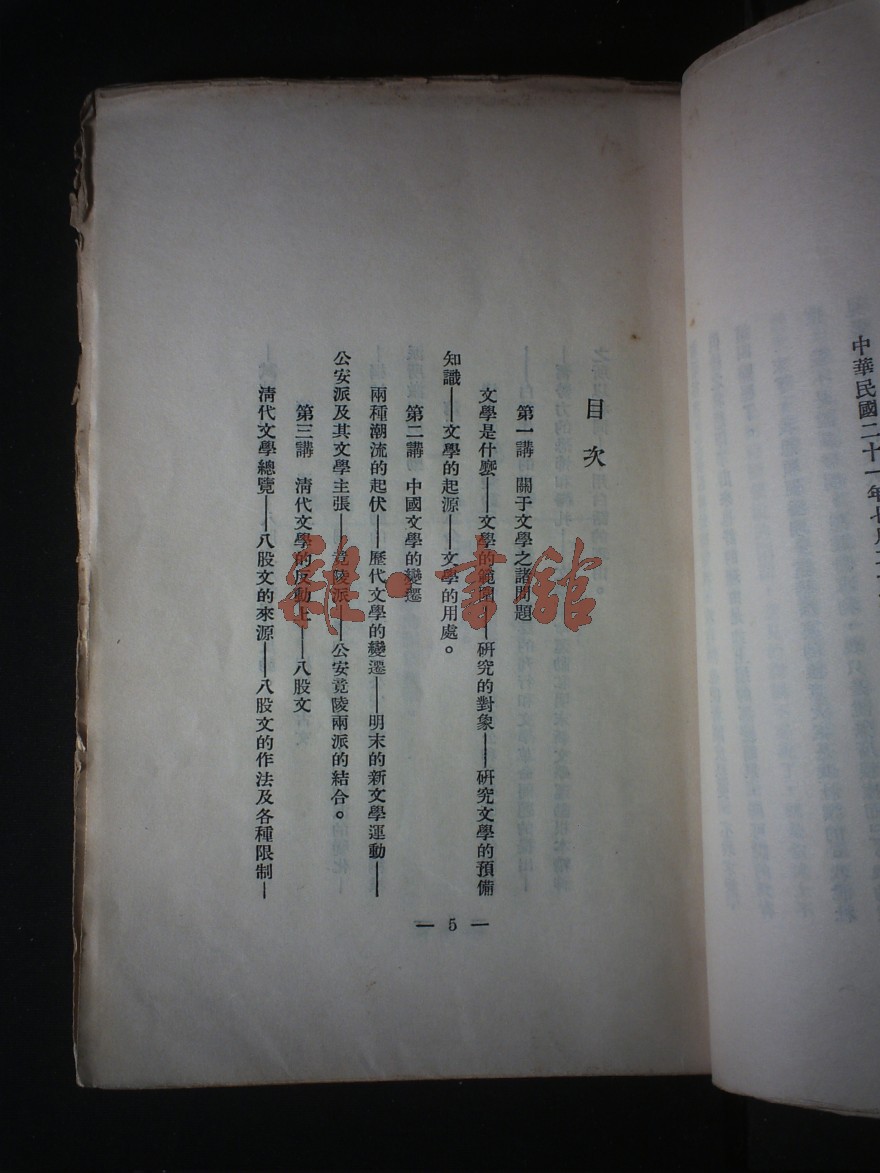 中華民國二十一年七月二十
目次
第一講　關于文學之諸問題
文學是什麽——文學的範圍——研究的對象——研究文學的預備
知識——文學的起源——文學的用處。
第二講　中國文學的變遷
兩種潮流的起伏——歷代文學的變遷——明末的新文學運動——
公安派及其文學主張——竟陵派——公安竟陵兩派的結合。
第三講　清代文學的反動上——八股文
清代文學總覽——八股文的來源——八股文的作法及各種限制—
— 5 —
雜·書館